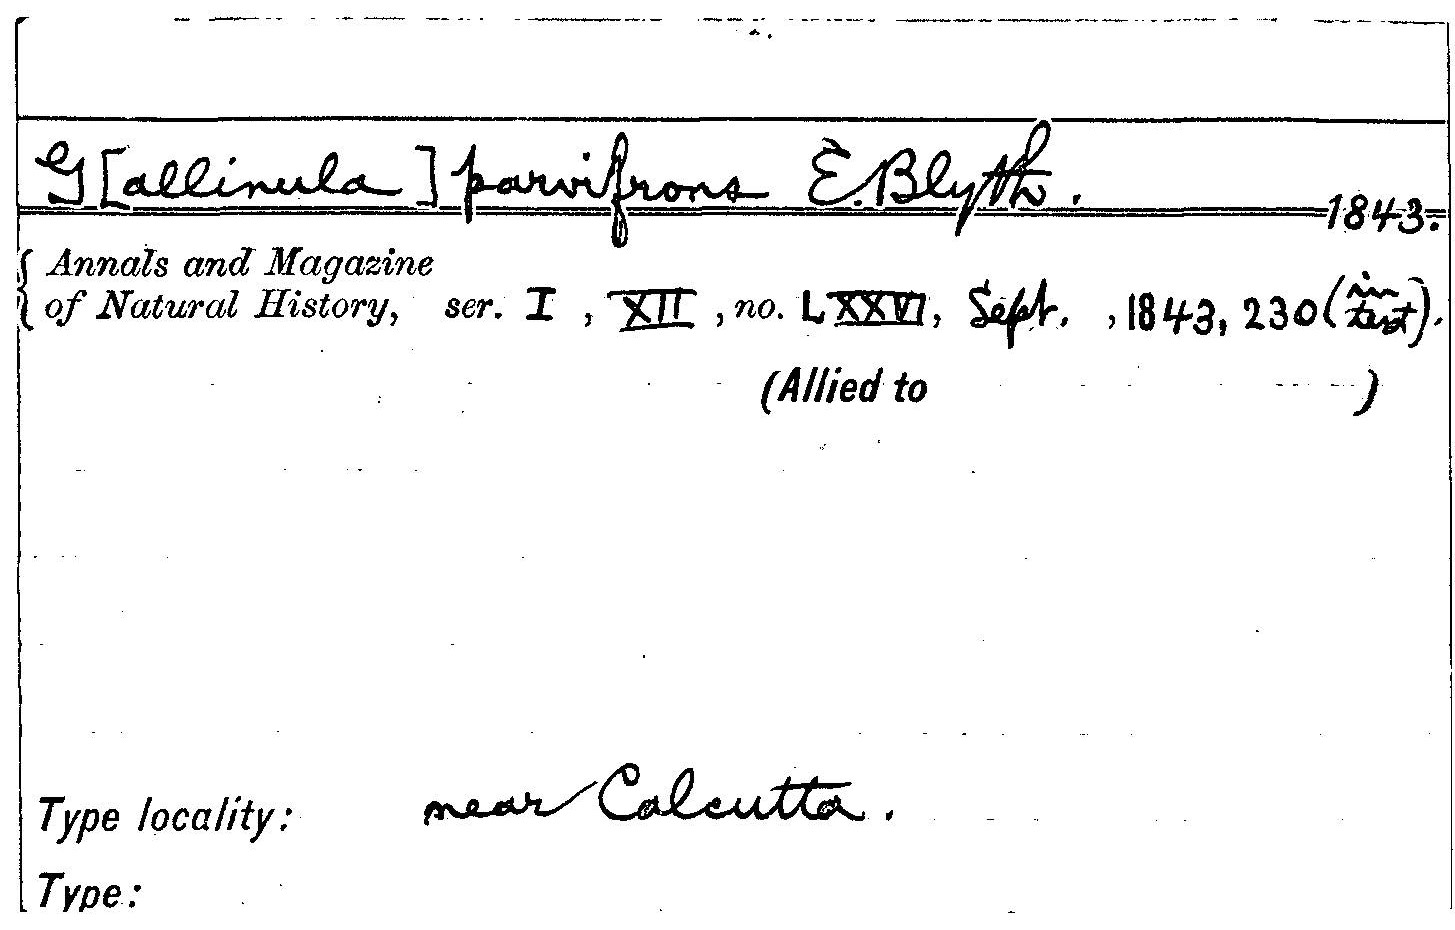 G[allinula] parvifrons E. Blyth. 1843.
{ Annals and Magazine
of Natural History, ser. I, XII, no. LXXVI, Sept., 1843, 230 (in text).
(Allied to )
Type locality: near Calcutta.
Type: